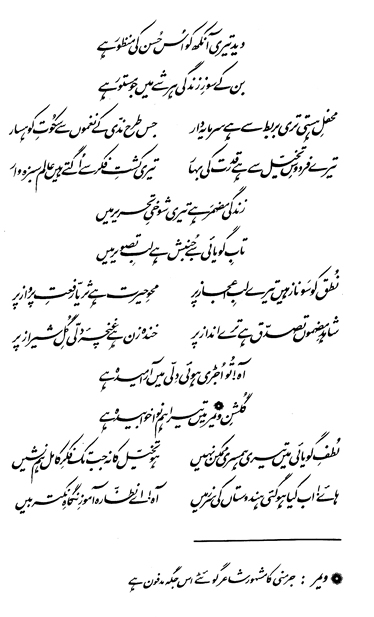 دید تیری آنکھ کو اُس حُسن کی منظور ہے
بن کے سوزِ زندگی ہر شے میں جو مستور ہے
محفلِ ہستی تری بربط سے ہے سرمایہ دار جس طرح ندی کے نغموں سے سکُوتِ کوہسار
تیرے فردوسِ تخیّل سے ہے قدرت کی بہار تیری کشتِ فکر سے اُگتے ہیں عالم سبزہ وار
زندگی مضمر ہے تیری شوخیِ تحریر میں
تابِ گویائی سے جُنبش ہے لبِ تصویر میں
نُطق کو سَو ناز ہیں تیرے لبِ اعجاز پر محوِ حیرت ہے ثریّا رفعتِ پرواز پر
شاہدِ مضموں تصدّق ہے ترے انداز پر خندہ زن ہے غنچۂ دلّی گُلِ شیراز پر
آہ! تُو اجڑی ہوئی دلّی میں آرامیدہ ہے
گُلشنِ ویمر میں تیرا ہم نوا خوابیدہ ہے
لُطفِ گویائی میں تیری ہمسری ممکن نہیں ہو تخیّل کا نہ جب تک فکرِ کامل ہم نشیں
ہائے! اب کیا ہو گئی ہندوستاں کی سرزمیں آہ! اے نظّارہ آموزِ نگاہِ نکتہ بیں
ویمر : جرمنی کا مشہور شاعر گوئٹے اس جگہ مدفون ہے